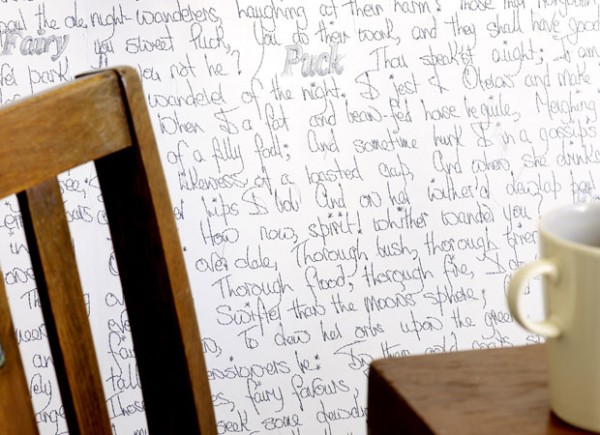 the night-wanderers, laughing at their harm? Those that
Fairy you sweet Puck, You do their work, and they shall have good
Puck Thou speak'st aright; I am
you not he?
wanderer of the night. I jest to Oberon and make
When I a fat and bean-fed horse beguile, Neighing
of a filly foal; And sometime lurk I in a gossips
likeness of a roasted crab, And when she drinks
lips I bob And on her wither'd dewlap
How now, spirit! whither wander you?
over dale, Thorough bush, thorough brier
Thorough flood, thorough fire, I do
Swifter than the moons sphere;
To dew her orbs upon the green
be: In their gold coats spots
fairy favours,
seek some